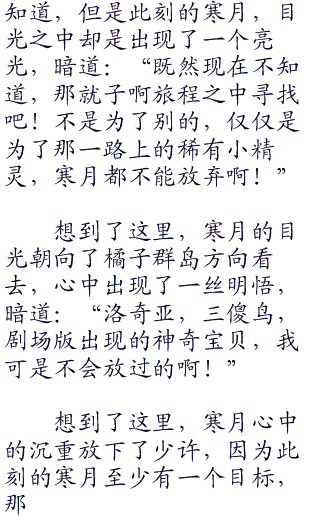 知道，但是此刻的寒月，目
光之中却是出现了一个亮
光，暗道：“既然现在不知
道，那就子啊旅程之中寻找
吧！不是为了别的，仅仅是
为了那一路上的稀有小精
灵，寒月都不能放弃啊！”
想到了这里，寒月的目
光朝向了橘子群岛方向看
去，心中出现了一丝明悟，
暗道：“洛奇亚，三傻鸟，
剧场版出现的神奇宝贝，我
可是不会放过的啊！”
想到了这里，寒月心中
的沉重放下了少许，因为此
刻的寒月至少有一个目标，
那